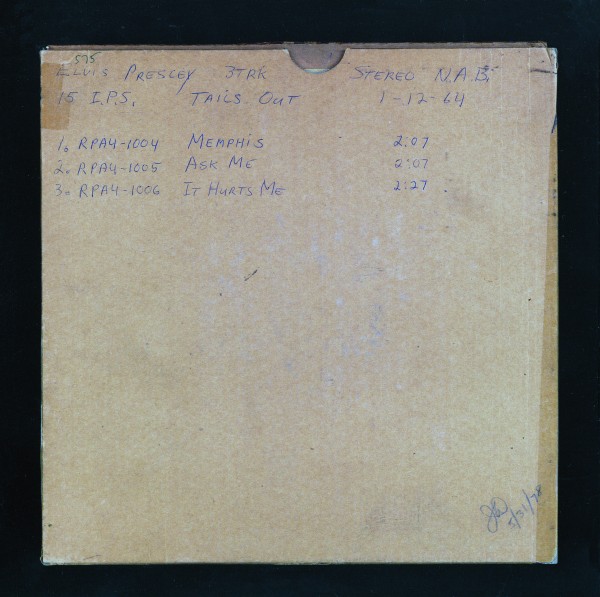 575
ELVIS PRESLEY 3TRK STEREO N.A.B.
15 I.P.S. TAILS OUT 1-12-64
1. RPA4-1004 MEMPHIS 2:07
2. RPA4-1005 ASK ME 2:07
3. RPA4-1006 IT HURTS ME 2:27
5/31/78